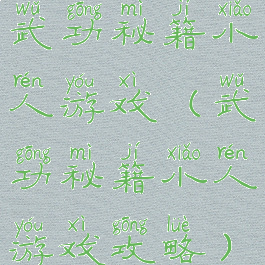 wǔ gōng mì jí xiǎo
武功秘籍小
rén yóu xì wǔ
人游戏（武
gōng mì jí xiǎo rén
功秘籍小人
yóu xì gōng lüè
游戏攻略）